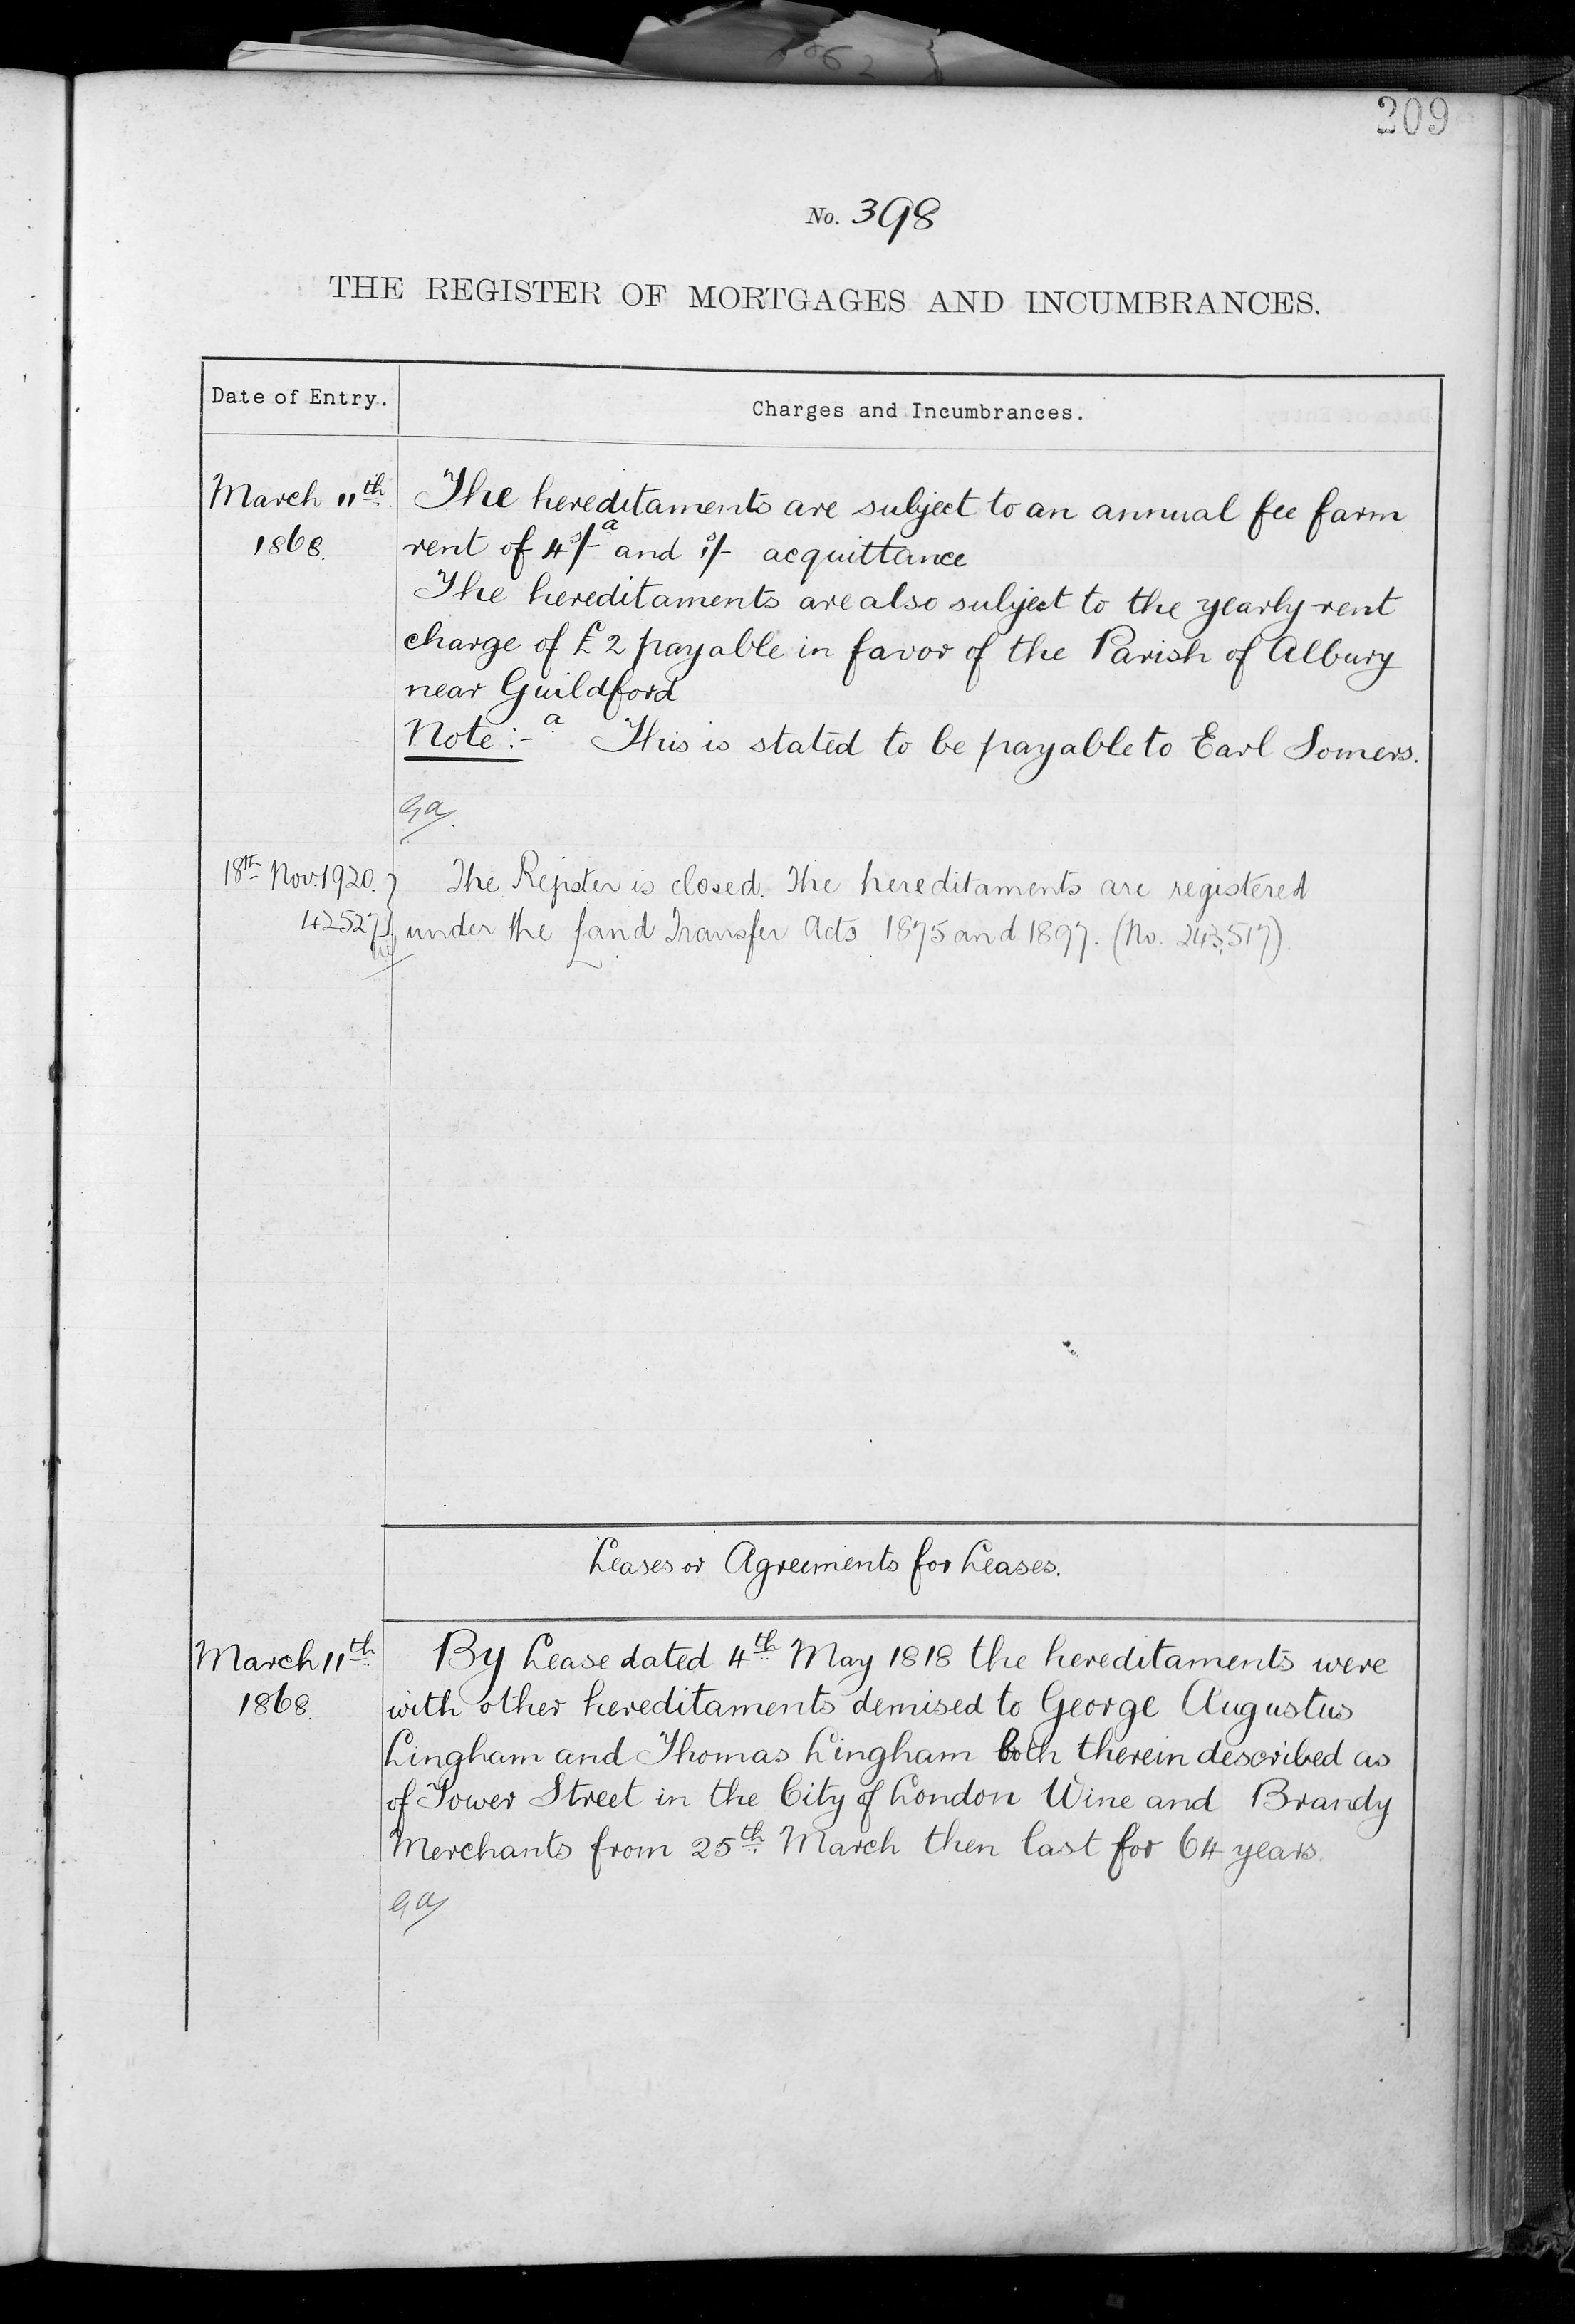 209
No. 398
THE REGISTER OF MORTGAGES AND INCUMBRANCES.
Date of Entry.
Charges and Incumbrances.
March 11th
1868.
The hereditaments are subject to an annual fee farm
rent of 4s/- a and 1s/- acquittance
The hereditaments are also subject to the yearly rent
charge of £2 payable in favor of the Parish of Albury
near Guildford
Note:- a This is stated to be payable to Earl Somers.
18th Nov. 1920.
42527
The Register is closed. The hereditaments are registered
under the Land Transfer Acts 1875 and 1897. (No. 243,517).
Leases or Agreements for Leases.
March 11th
1868.
By Lease dated 4th May 1818 the hereditaments were
with other hereditaments demised to George Augustus
Lingham and Thomas Lingham both therein described as
of Tower Street in the City of London Wine and Brandy
Merchants from 25th March then last for 64 years.